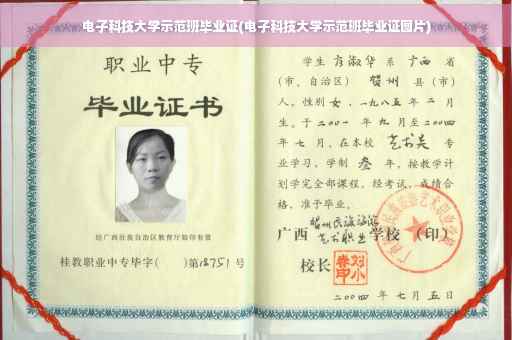 电子科技大学示范班毕业证(电子科技大学示范班毕业证图片)
职业中专
毕业证书
经广西壮族自治区教育厅验印有效
桂教职业中专毕字( )第18751号
学生 方淑华 系 广西 省
(市、自治区) 贺州 县(市)
人,性别女,一九八五年 二 月
生。于二00一 年 九 月至二00四
年 七 月,在本校 艺术类 专
业学习,学制 叁 年,按教学计
划学完全部课程,经考试,成绩合
格,准予毕业。
广西 贺州民族旅游艺术职业学校(印)
校长
二00四 年 七 月 五 日